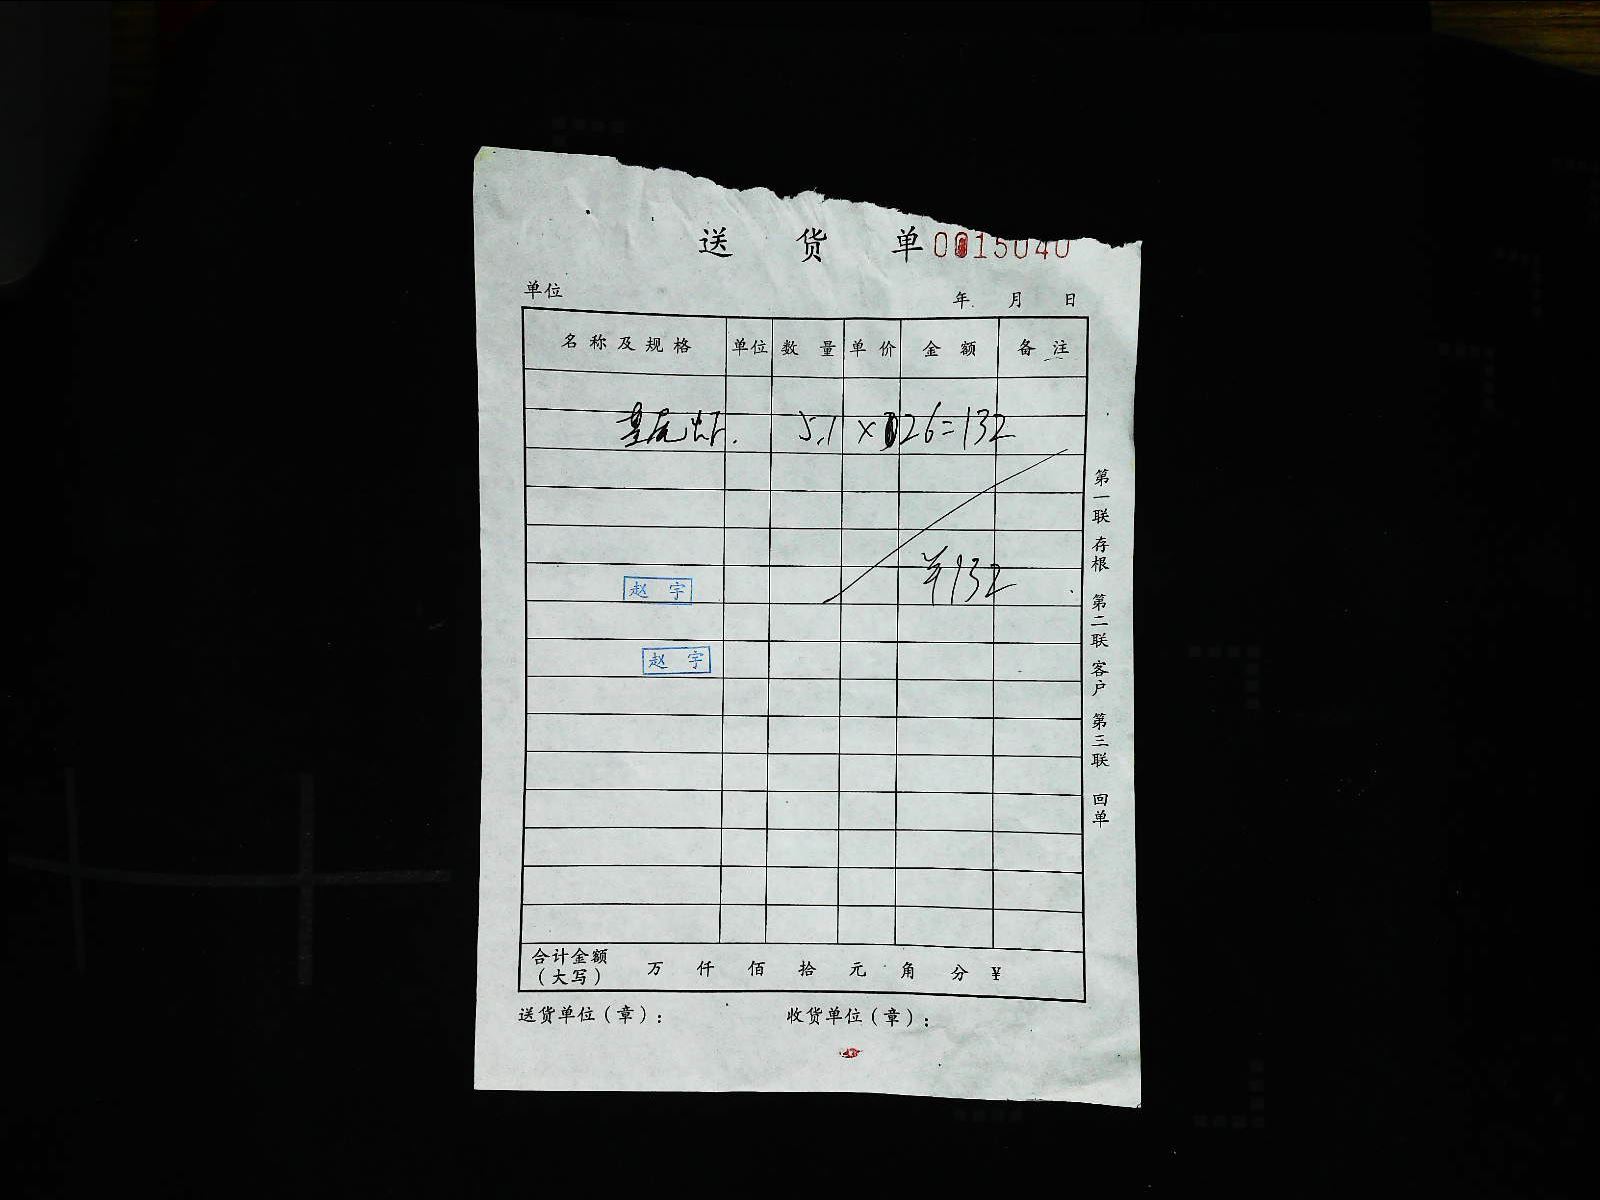 送 货 单 0015040
单位 年 月 日
名称及规格 单位 数量 单价 金额 备注
基尾虾. 5.1 × 26=132
¥132
赵 宇
赵 宇
合计金额
(大写) 万 仟 佰 拾 元 角 分 ¥
送货单位(章): 收货单位(章):
第一联 存根 第二联 客户 第三联 回单